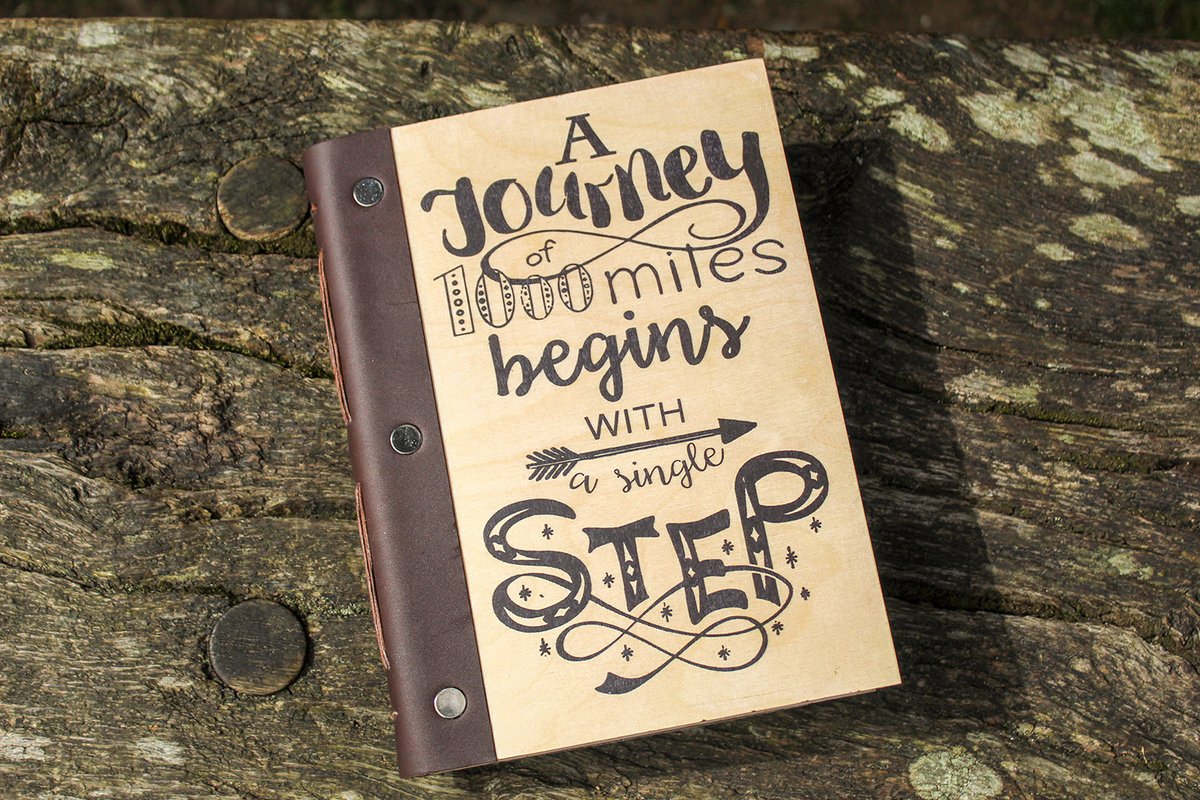 A
Journey
of
1000 miles
begins
WITH
a single
STEP